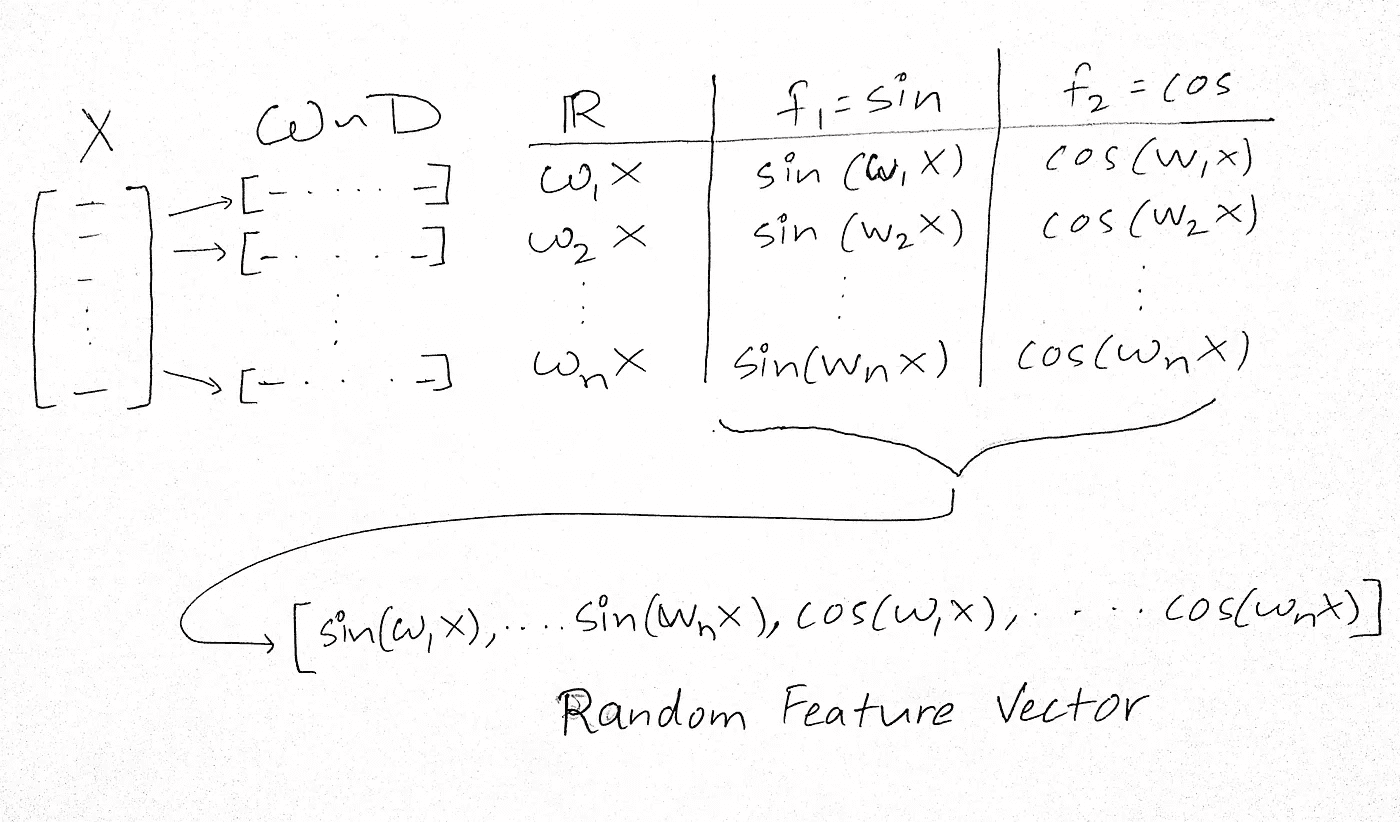 X ω ~ D ℝ f₁ = sin f₂ = cos
[– – – ⋮ –] → [– ..... –] ω₁x sin(ω₁x) cos(w₁x)
→ [– .... –] ω₂x sin(w₂x) cos(w₂x)
⋮ ⋮ ⋮ ⋮
→ [– .... –] ωₙx sin(wₙx) cos(ωₙx)
→ [sin(ω₁x), .... sin(wₙx), cos(ω₁x), .... cos(ωₙx)]
Random Feature Vector